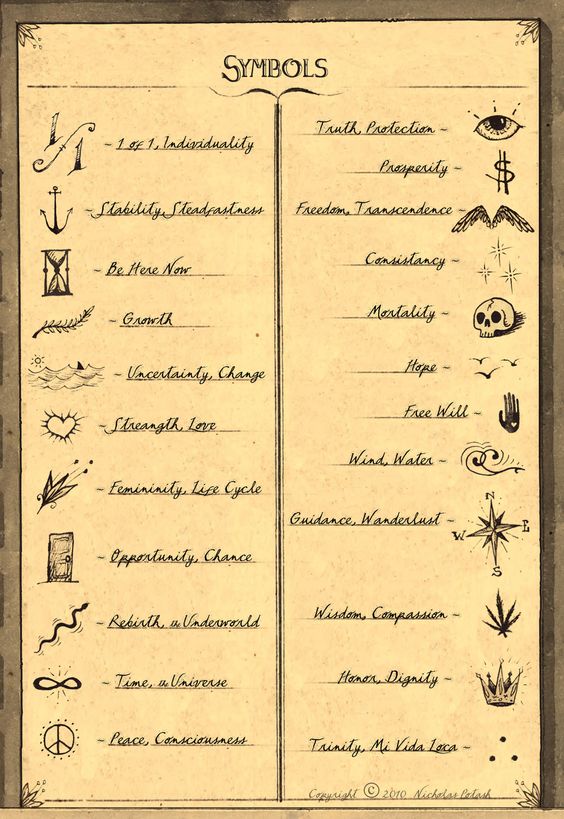 SYMBOLS
1/1 ~ 1 of 1, Individuality
~ Stability, Steadfastness
~ Be Here Now
~ Growth
~ Uncertainty, Change
~ Streangth, Love
~ Femininity, Life Cycle
~ Opportunity, Chance
~ Rebirth, Underworld
~ Time, Universe
~ Peace, Consciousness
Truth, Protection ~
Prosperity ~ $
Freedom, Transcendence ~
Consistancy ~
Mortality ~
Hope ~
Free Will ~
Wind, Water ~
N
Guidance, Wanderlust ~
W E
S
Wisdom, Compassion ~
Honor, Dignity ~
Trinity, Mi Vida Loca ~
Copyright © 2010 Nicholas Potash